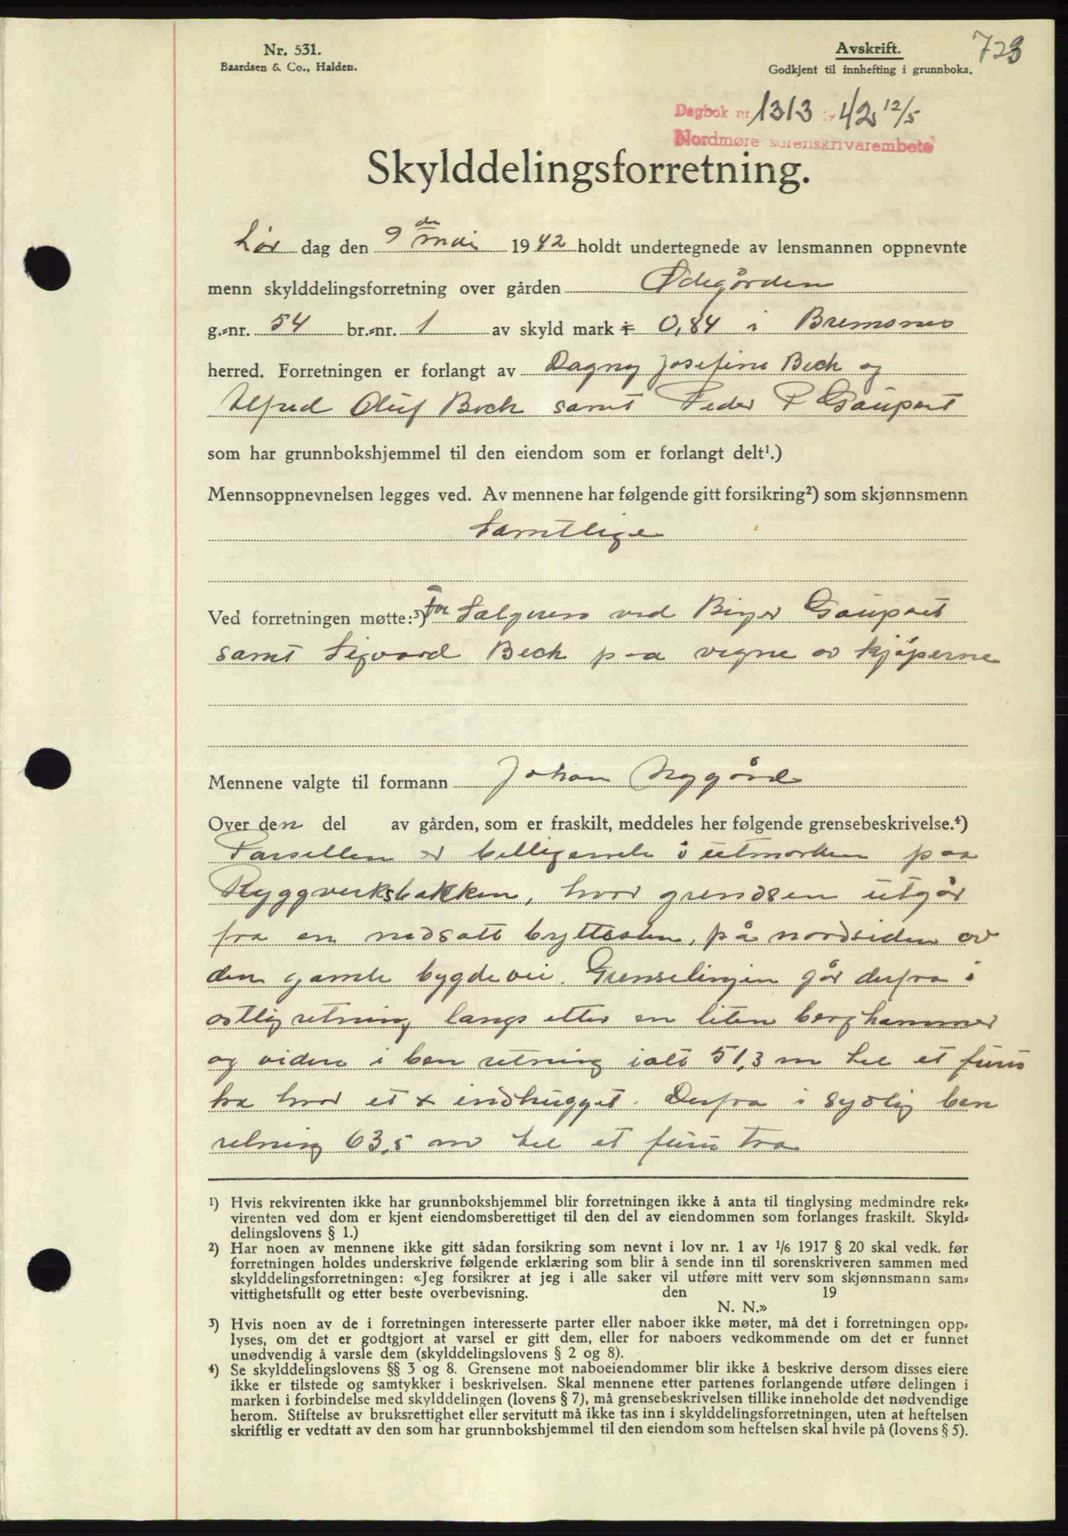 Nr. 531.
Baardsen & Co., Halden.
Avskrift.
Godkjent til innhefting i grunnboka.
723
Dagbok nr 1313 - 42 12/5
Nordmøre sorenskrivarembete
Skylddelingsforretning.
Lør dag den 9 de mai 1942 holdt undertegnede av lensmannen oppnevnte
menn skylddelingsforretning over gården Ødegården
g.-nr. 54 br.-nr. 1 av skyld mark 0,84 i Bremsnes
herred. Forretningen er forlangt av Dagny Josefine Beck og
Alfred Oluf Beck samt Peder P Gaupset
som har grunnbokshjemmel til den eiendom som er forlangt delt¹.)
Mennsoppnevnelsen legges ved. Av mennene har følgende gitt forsikring²) som skjønnsmenn
Samtlige
Ved forretningen møtte:³) For Selgeren ved Birger Gaupset
samt Sigvard Beck paa vegne av kjøperne
Mennene valgte til formann Johan Nygård
Over den del av gården, som er fraskilt, meddeles her følgende grensebeskrivelse.⁴)
Parsellen er belligende i utmarken paa
Ryggverksbakken, hvor grendsen utgår
fra en nedsatt byttesten, på nordsiden av
den gamle bygdevei. Grenselinjen går derfra i
ostlig retning langs etter en liten berghammer
og videre i ben retning ialt 51,3 m til et furu
tra hvor et x indhugget. Derfra i sydlig ben
retning 63,5 m til et furu tra
¹) Hvis rekvirenten ikke har grunnbokshjemmel blir forretningen ikke å anta til tinglysing medmindre rek-
virenten ved dom er kjent eiendomsberettiget til den del av eiendommen som forlanges fraskilt. Skyld-
delingslovens § 1.)
²) Har noen av mennene ikke gitt sådan forsikring som nevnt i lov nr. 1 av 1/6 1917 § 20 skal vedk. før
forretningen holdes underskrive følgende erklæring som blir å sende inn til sorenskriveren sammen med
skylddelingsforretningen: «Jeg forsikrer at jeg i alle saker vil utføre mitt verv som skjønnsmann sam-
vittighetsfullt og etter beste overbevisning. den 19
N. N.»
³) Hvis noen av de i forretningen interesserte parter eller naboer ikke møter, må det i forretningen opp-
lyses, om det er godtgjort at varsel er gitt dem, eller for naboers vedkommende om det er funnet
unødvendig å varsle dem (skylddelingslovens § 2 og 8).
⁴) Se skylddelingslovens §§ 3 og 8. Grensene mot naboeiendommer blir ikke å beskrive dersom disses eiere
ikke er tilstede og samtykker i beskrivelsen. Skal mennene etter partenes forlangende utføre delingen i
marken i forbindelse med skylddelingen (lovens § 7), må grensebeskrivelsen tillike inneholde det nødvendige
herom. Stiftelse av bruksrettighet eller servitutt må ikke tas inn i skylddelingsforretningen, uten at heftelsen
skriftlig er vedtatt av den som har grunnbokshjemmel til den eiendom som heftelsen skal hvile på (lovens § 5).